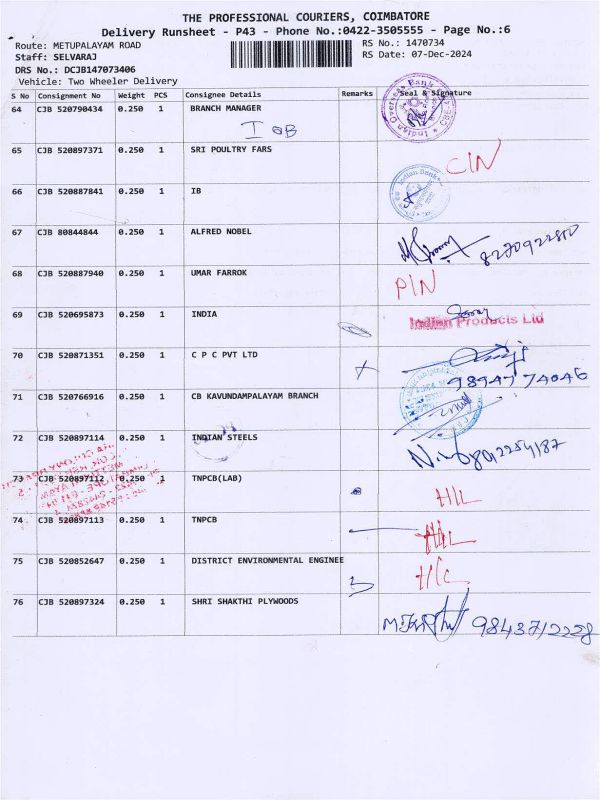 THE PROFESSIONAL COURIERS, COIMBATORE
Delivery Runsheet - P43 - Phone No.:0422-3505555 - Page No.:6
Route: METUPALAYAM ROAD RS No.: 1470734
Staff: SELVARAJ RS Date: 07-Dec-2024
DRS No.: DCJB147073406
Vehicle: Two Wheeler Delivery
S No Consignment No Weight PCS Consignee Details Remarks Seal & Signature
64 CJB 520790434 0.250 1 BRANCH MANAGER
IOB
65 CJB 520897371 0.250 1 SRI POULTRY FARS CIN
66 CJB 520887841 0.250 1 IB
67 CJB 80844844 0.250 1 ALFRED NOBEL
68 CJB 520887940 0.250 1 UMAR FARROK PIN
69 CJB 520695873 0.250 1 INDIA Indian Products Ltd
70 CJB 520871351 0.250 1 C P C PVT LTD
98947 74046
71 CJB 520766916 0.250 1 CB KAVUNDAMPALAYAM BRANCH
72 CJB 520897114 0.250 1 INDIAN STEELS
73 CJB 520897112 0.250 1 TNPCB(LAB)
74 CJB 520897113 0.250 1 TNPCB
75 CJB 520852647 0.250 1 DISTRICT ENVIRONMENTAL ENGINEE
76 CJB 520897324 0.250 1 SHRI SHAKTHI PLYWOODS 9843712228